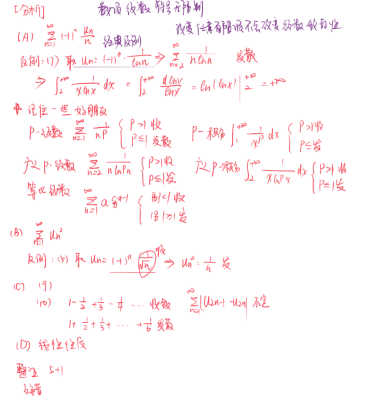 [分析] 数项级数 敛散无限制
改变任意有限项不会改变级数敛散性
(A) ∑_{n=1}^{∞} (-1)^n u_n/n 经典反例
反例:(1) 取 u_n = (-1)^n · 1/ln n ⇒ ∑_{n=2}^{∞} 1/(n ln n) 发散
⇒ ∫_2^{+∞} 1/(x ln x) dx = ∫_2^{+∞} d ln x/ln x = ln(ln x)|_2^{+∞} = +∞
记住一些好朋友
P-级数 ∑_{n=1}^{∞} 1/n^p { P>1 收 P≤1 发散 P-积分 ∫_1^{+∞} 1/x^p dx { P>1 收 P≤1 发
广义 P-级数 ∑_{n=2}^{∞} 1/(n ln^p n) { P>1 收 P≤1 发 广义 P-积分 ∫_2^{+∞} 1/(x ln^p x) dx { P>1 收 P≤1 发
等比级数 ∑_{n=1}^{∞} a q^{n-1} { |q|<1 收 |q|≥1 发
(B) ∑_{n=1}^{∞} u_n²
反例:(3) 取 u_n = (-1)^n 1/√n 收 ⇒ u_n² = 1/n 发
(C) (9)
(10) 1 - 1/2 + 1/3 - 1/4 ... 收敛 ∑_{n=1}^{∞} |u_{2n-1} - u_{2n}| 不定
1 + 1/2 + 1/3 + ... + 1/6 发散
(D) 线性性质